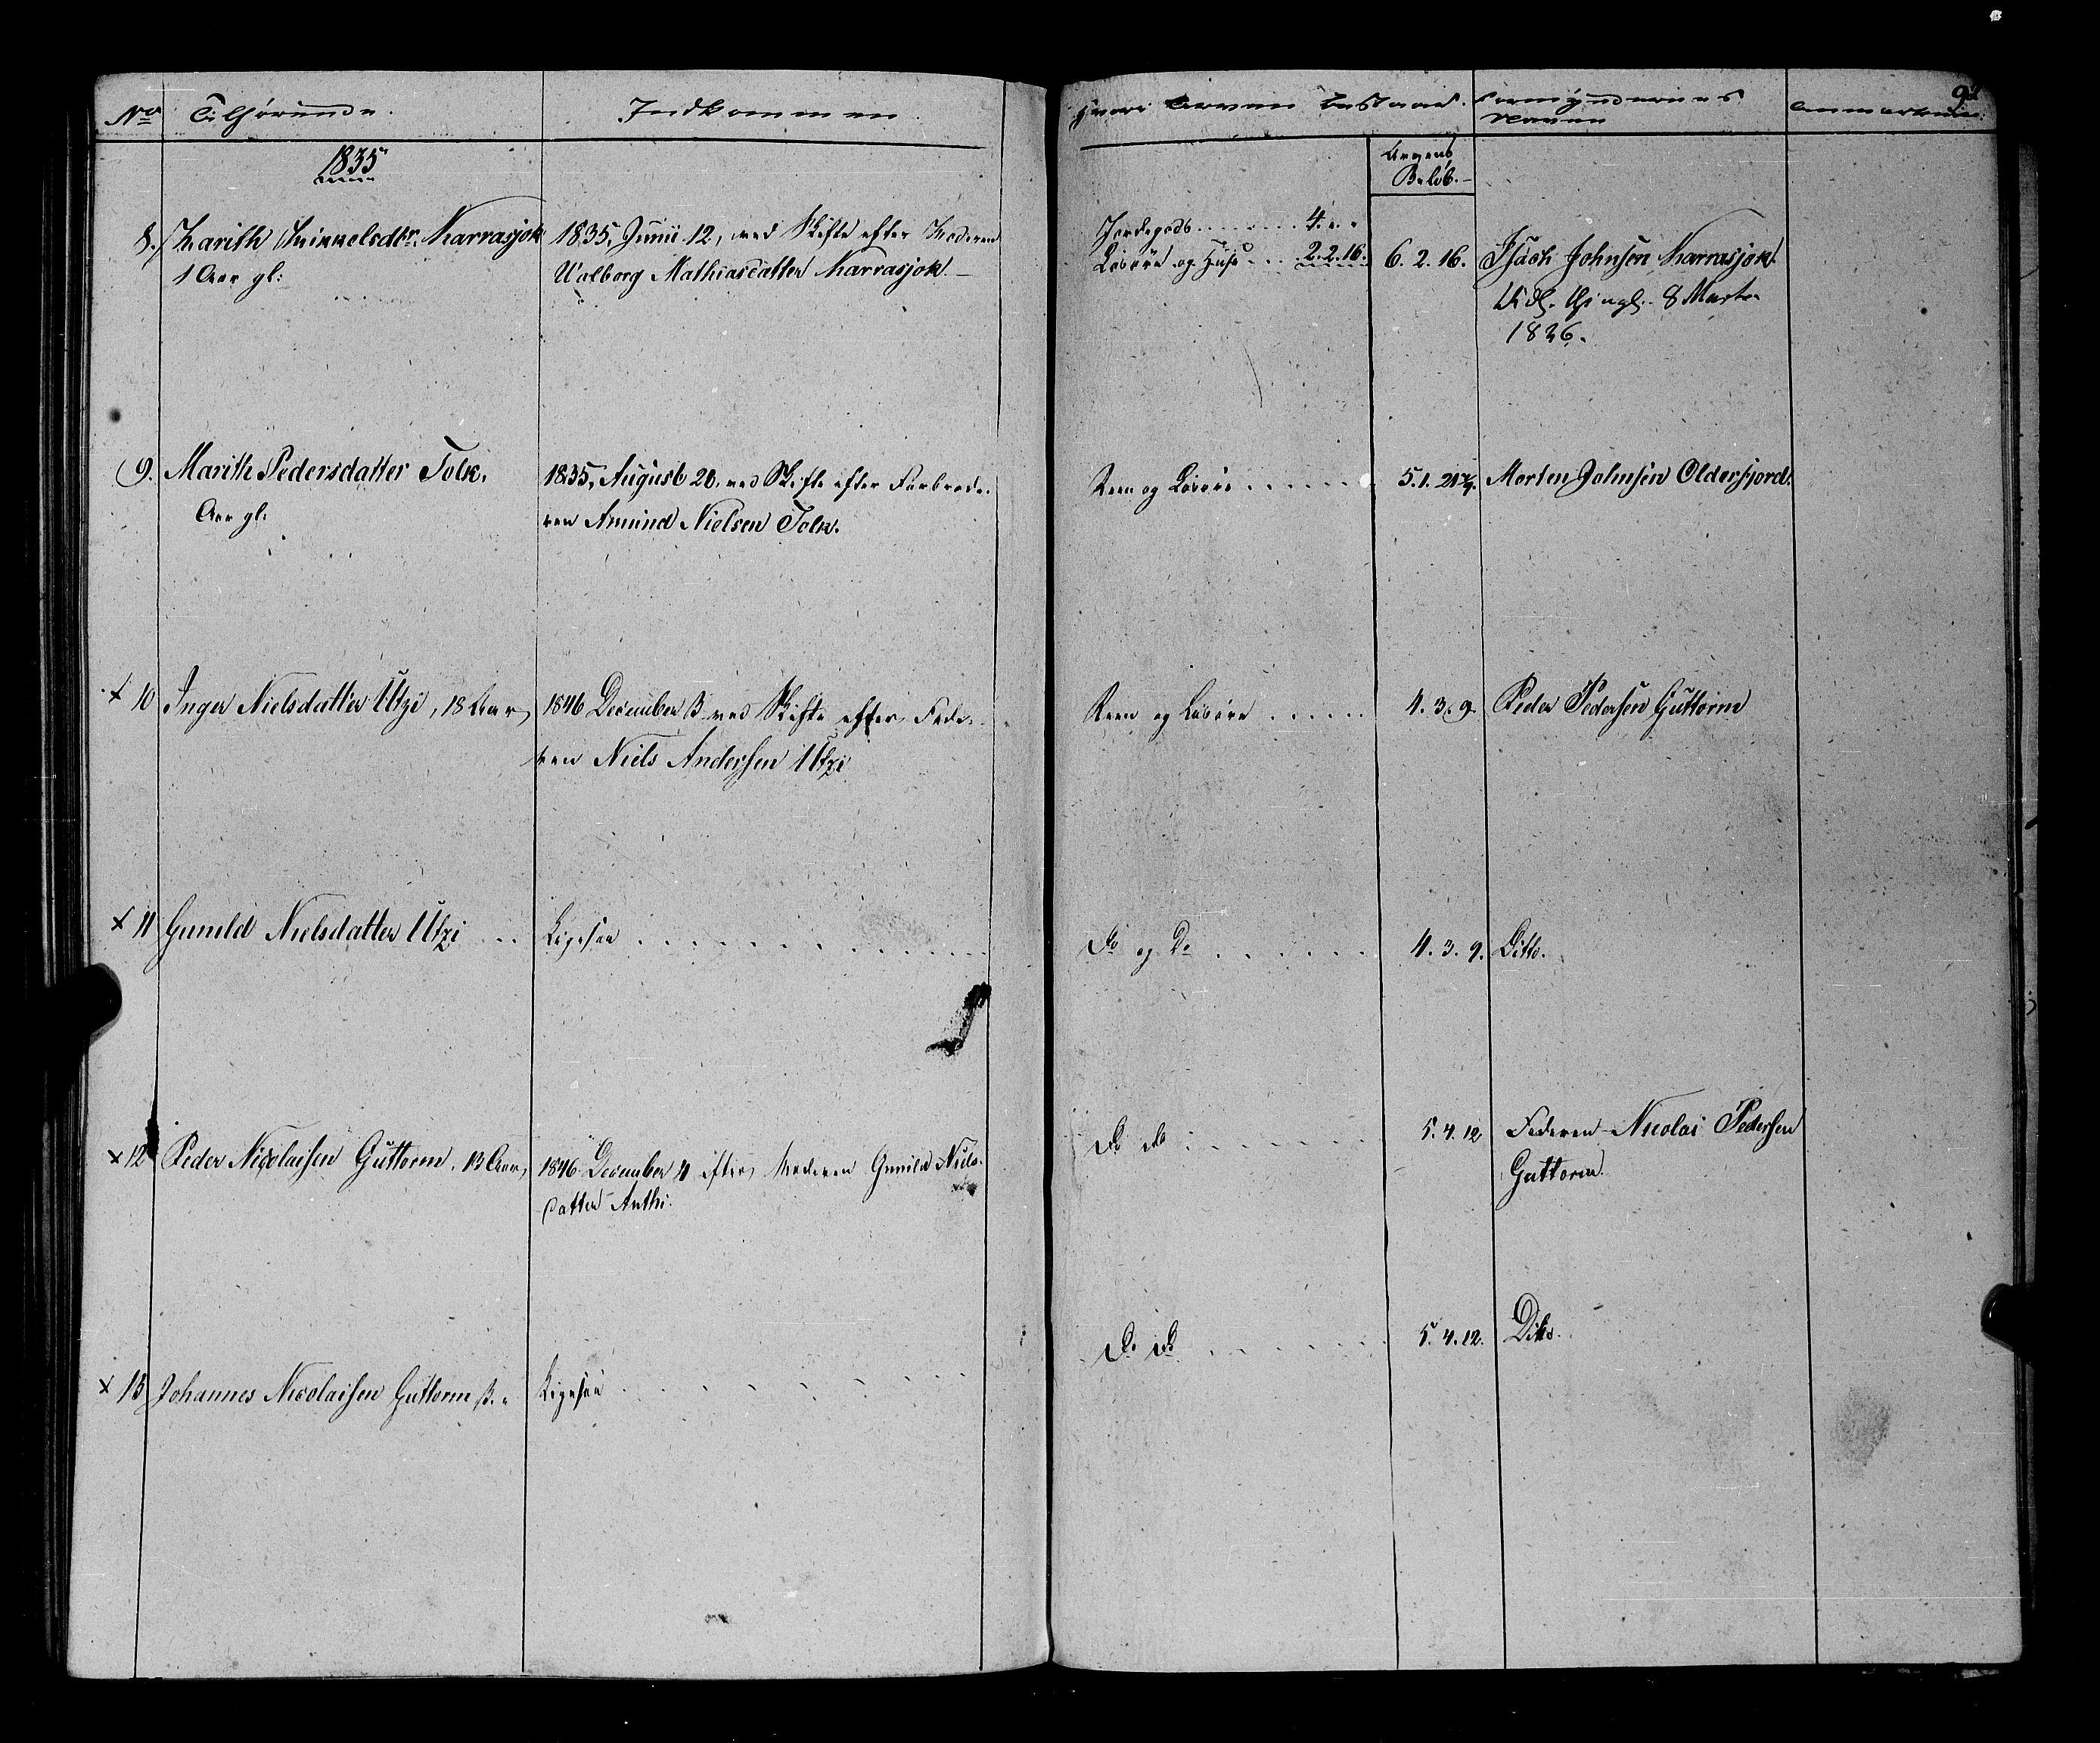 No Tilhørende. Indkommen. Hvori Arven bestaaer. Formyndernes Anmærkn:
Navne
92
1835
Arvens
Beløb.
8. Marith Henriksdtr. Karrasjok 1835, Junii 12, ved Skifte efter Moderen Jordegods . . . . . . . 4. „ „
1 Aar gl: Walborg Mathiasdatter Karrasjok. Løsøre og Huse . . . 2. 2. 16. 6. 2. 16. Isach Johnsen Karrasjok.
Vid. Thingl. 8 Marts
1836.
9. Marith Pedersdatter Tolk. 1835, August 20. ved Skifte efter Farbrode- Reen og Løsøre . . . . . . 5. 1. 21 Morten Johnsen Oldersfjord.
Aar gl: ren Amund Nielsen Tolk.
x 10 Inger Nielsdatter Utzi, 18 Aar, 1846 December 3 ved Skifte efter Fade- Reen og Løsøre . . . . . 4. 3. 9. Peder Pedersen Guttorm
ren Niels Andersen Utzi
x 11 Gunild Nielsdatter Utzi . . Ligesaa . . . . . . . . . . Do og Do . . . . . . 4. 3. 9. Ditto.
x 12 Peder Nicolaisen Guttorm, 13 Aar, 1846 December 4 efter Moderen Gunild Niels- Do do . . . . . . . 5. 4. 12 Faderen Nicolai Pedersen
datter Anthi. Guttorm.
x 13 Johannes Nicolaisen Guttorm 3. „ Ligesaa . . . . . . . . . Do do . . . . . . 5. 4. 12. Ditto.